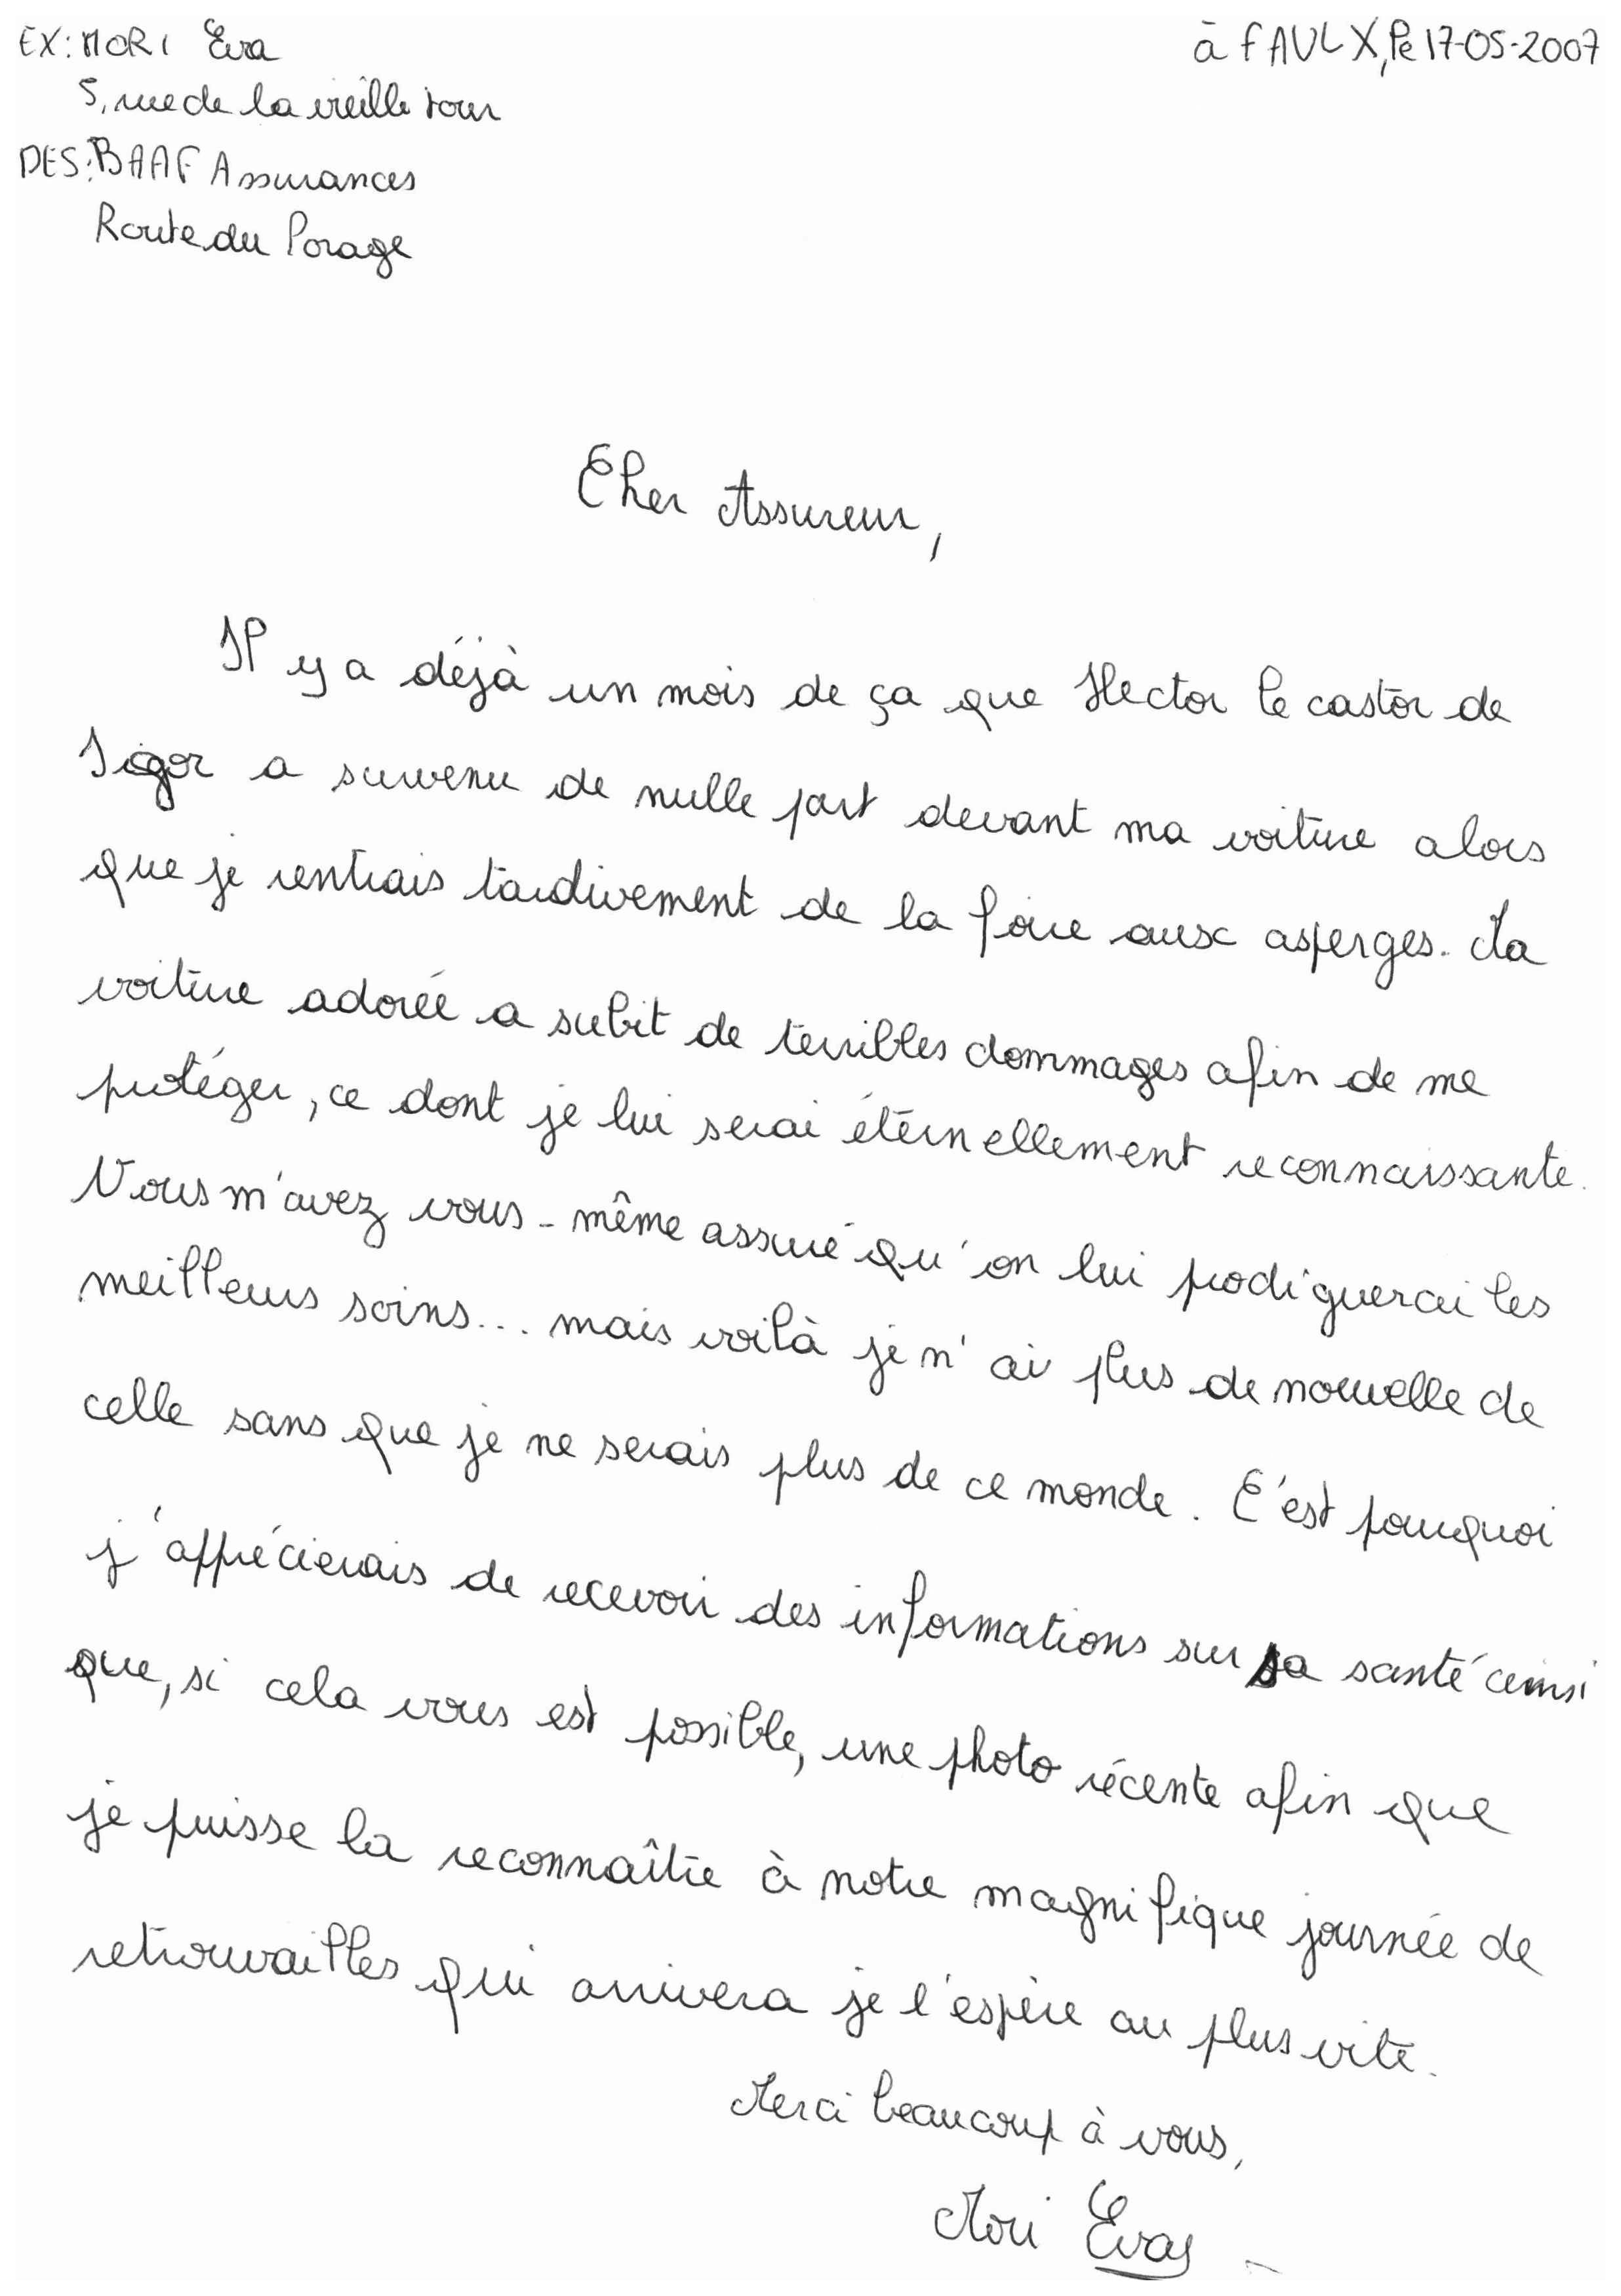 EX: MORI Eva
à FAULX, le 17-05-2007
5, rue de la vieille tour
DES: BAAF Assurances
Route du Porage
Cher Assureur,
Il y a déjà un mois de ça que Hector le castor de
Sigor a survenu de nulle part devant ma voiture alors
que je rentrais tardivement de la foire aux asperges. Ma
voiture adorée a subit de terribles dommages afin de me
protéger, ce dont je lui serai éternellement reconnaissante.
Vous m'avez vous-même assuré qu'on lui prodiguerai les
meilleurs soins... mais voilà je n'ai plus de nouvelle de
celle sans que je ne serais plus de ce monde. C'est pourquoi
j'apprécierais de recevoir des informations sur sa santé ainsi
que, si cela vous est possible, une photo récente afin que
je puisse la reconnaître à notre magnifique journée de
retrouvailles qui arrivera je l'espère au plus vite.
Merci beaucoup à vous,
Mori Eva